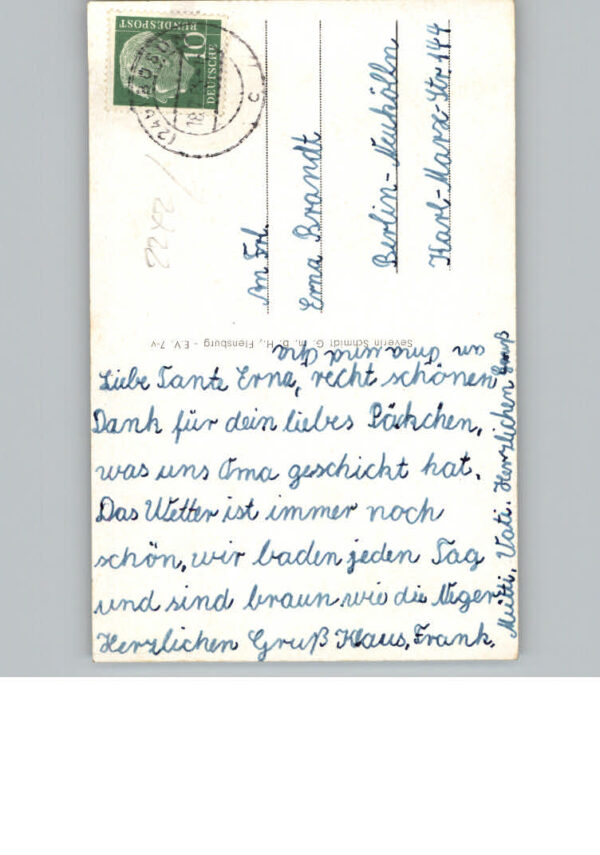 Liebe Tante Erna, recht schönen
Dank für dein liebes Päckchen,
was uns Oma geschickt hat.
Das Wetter ist immer noch
schön, wir baden jeden Tag
und sind braun wie die Neger
Herzlichen Gruß Klaus, Frank.
Mutti, Vati. Herzlichen Gruß
an Oma und Opa
An Frl.
Erna Brandt
Berlin-Neukölln
Karl-Marx-Str. 144
Severin Schmidt G. m. b. H., Flensburg - E.V. 7-v
DEUTSCHE
BUNDESPOST
10
(24b)
c